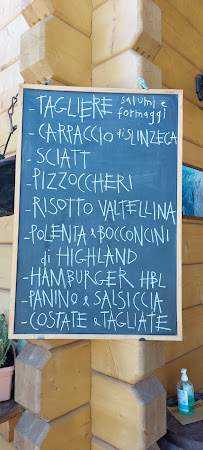 - TAGLIERE salumi e formaggi
- CARPACCIO di SLINZEGA
- SCIATT
- PIZZOCCHERI
- RISOTTO VALTELLINA
- POLENTA e BOCCONCINI
di HIGHLAND
- HAMBURGER HBL
- PANINO e SALSICCIA
- COSTATE e TAGLIATE